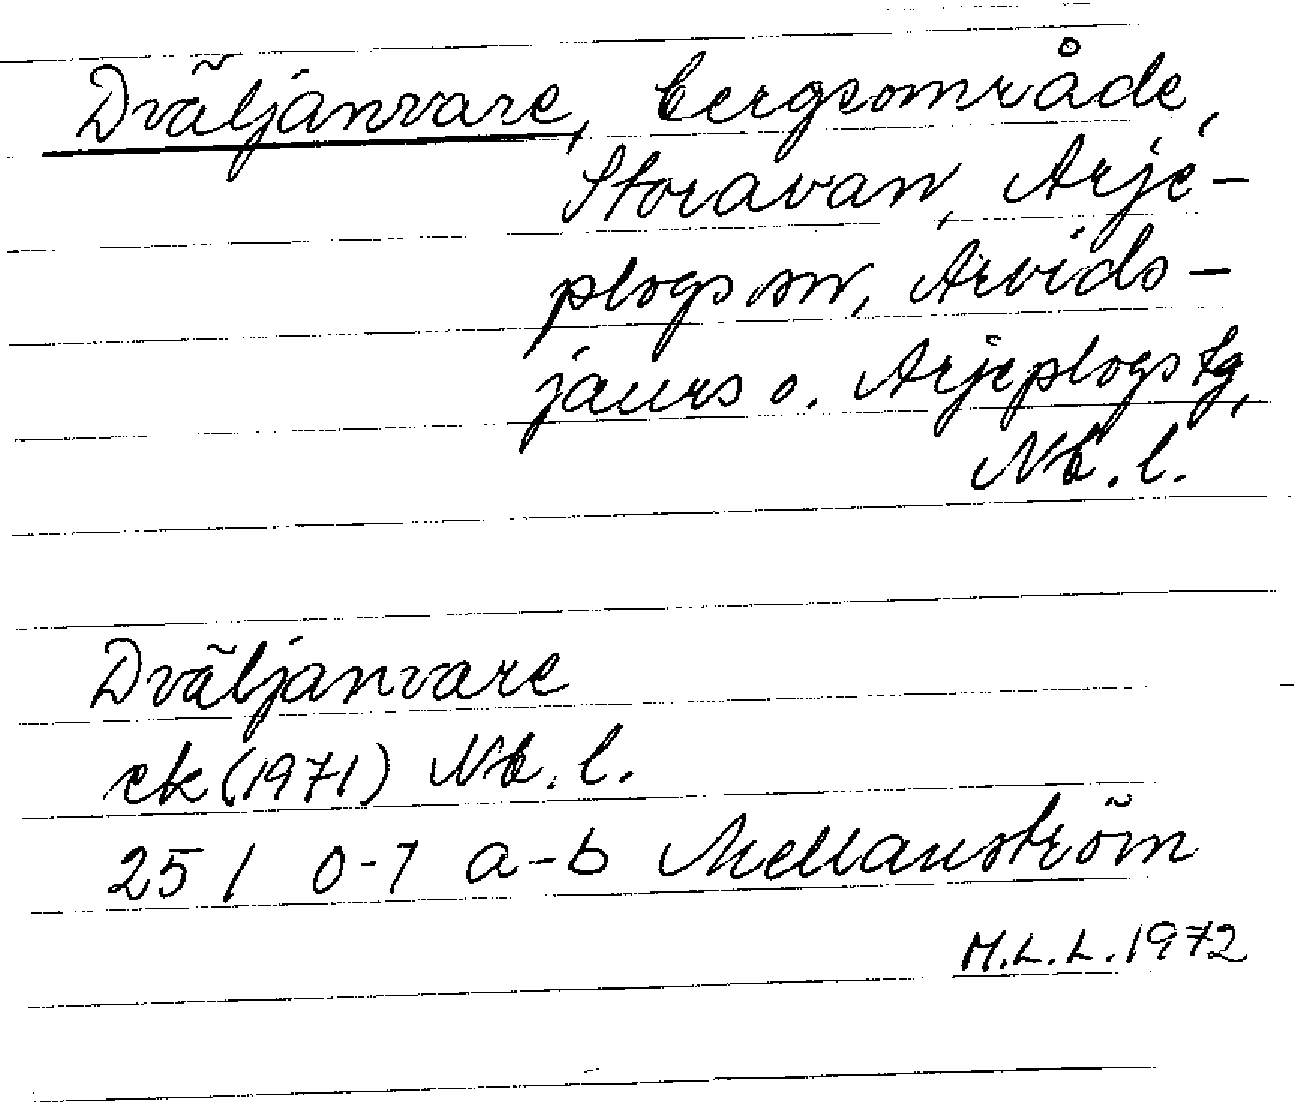 Dväljanvare, bergsområde,
Storavan, Arje-
plogs sn, Arvids-
jaurs o. Arjeplogs tg,
Nb. l.
Dväljanvare
ek (1971) Nb. l.
25 I 0-1 a-b Mellanström
M.L.L. 1972